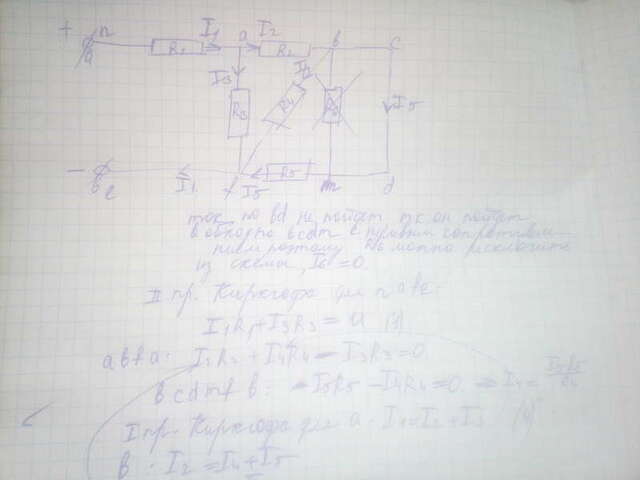 + n I1 a I2 b c
a R1 R2
I3 I4
R3 R4 R6 I5
- I1 f I5 R5 m d
b e
ток по bd не пойдет тк он пойдет
в обход по bcdm с нулевым сопротивле-
нием поэтому R6 можно исключить
из схемы, I6 = 0.
II пр. Кирхгофа для
I1R1 + I3R3 = U
abfa: I2R2 + I4R4 - I3R3 = 0
bcdmfb: I5R5 - I4R4 = 0 I4 = I5R5/R4
I пр. Кирхгофа для a: I1 = I2 + I3
b: I2 = I4 + I5